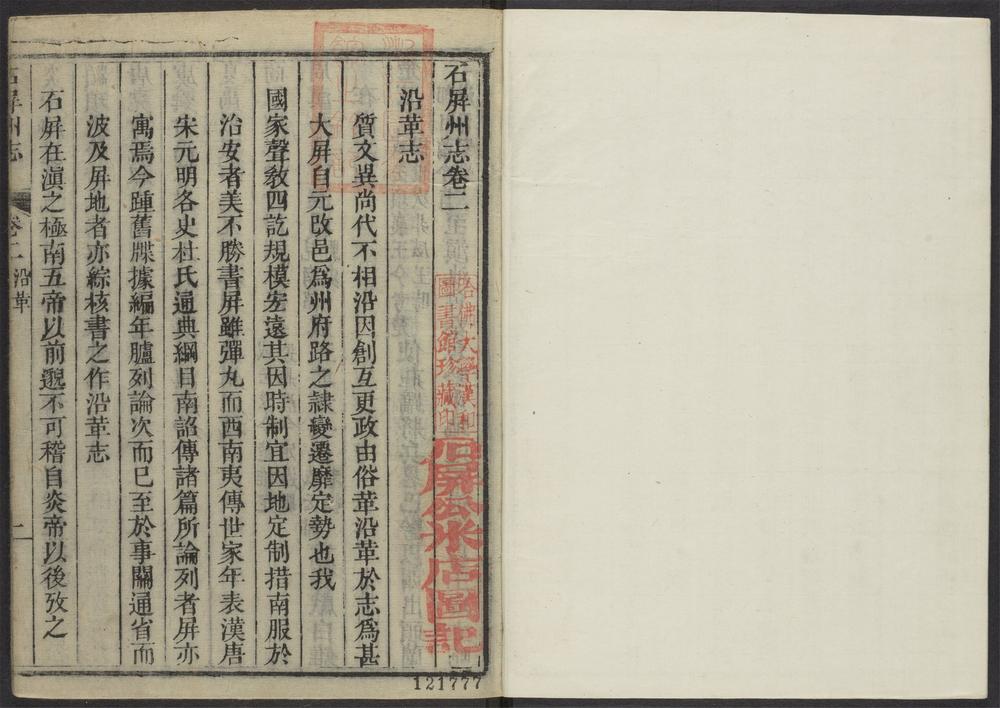 石屏州志卷二
沿革志
質文異尚代不相沿因創互更政由俗革沿革於志爲甚
大屏自元改邑爲州府路之隸變遷靡定勢也我
國家聲敎四訖規模宏遠其因時制宜因地定制措南服於
治安者美不勝書屏雖彈丸而西南夷傳世家年表漢唐
宋元明各史杜氏通典綱目南詔傳諸篇所論列者屏亦
寓焉今踵舊牒據編年臚列論次而已至於事關通省而
波及屏地者亦綜核書之作沿革志
石屏在滇之極南五帝以前邈不可稽自炎帝以後攷之
石屏州志
卷二 沿革
一
哈佛大學漢和
圖書館珍藏印
石屏公米店圖記
121777